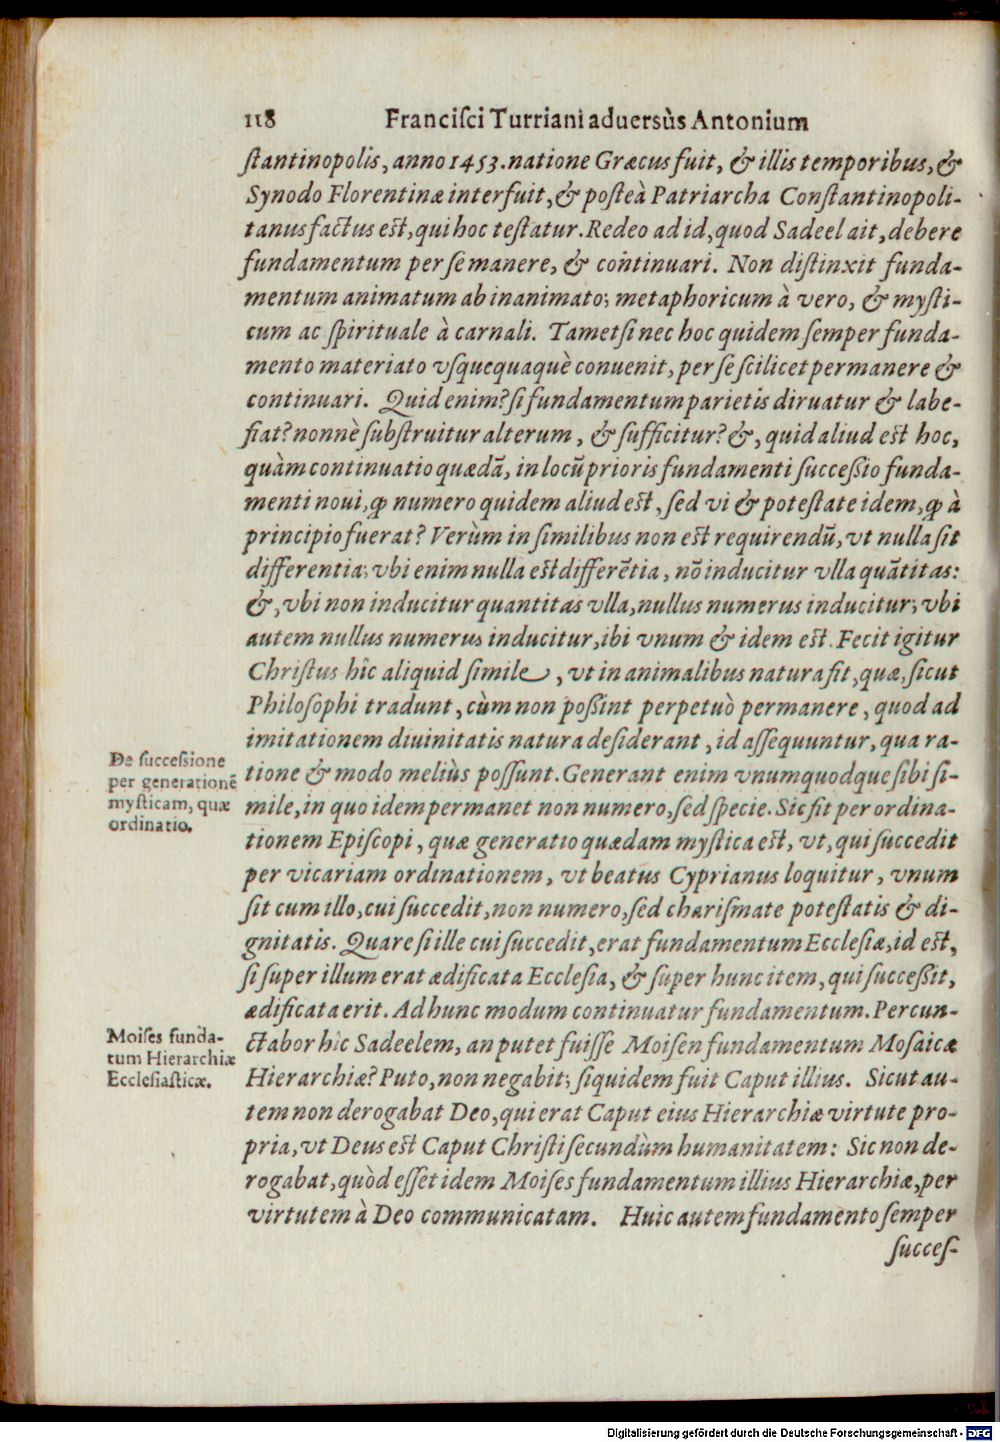 118 Franciſci Turriani aduersùs Antonium
ſtantinopolis, anno 1453. natione Græcus fuit, & illis temporibus, &
Synodo Florentinæ interfuit, & poſteà Patriarcha Conſtantinopoli-
tanus factus est, qui hoc teſtatur. Redeo ad id, quod Sadeel ait, debere
fundamentum per ſe manere, & continuari. Non diſtinxit funda-
mentum animatum ab inanimato; metaphoricum à vero, & myſti-
cum ac ſpirituale à carnali. Tametſi nec hoc quidem ſemper funda-
mento materiato vſquequaquè conuenit, per ſe ſcilicet permanere &
continuari. Quid enim? ſi fundamentum parietis diruatur & labe-
fiat? nonnè ſubſtruitur alterum, & ſufficitur? &, quid aliud est hoc,
quàm continuatio quædā, in locū prioris fundamenti ſucceßio funda-
menti noui, ꝙ numero quidem aliud est, ſed vi & poteſtate idem, ꝙ à
principio fuerat? Verùm in ſimilibus non est requirendū, vt nulla ſit
differentia; vbi enim nulla est differētia, nō inducitur vlla quātitas:
&, vbi non inducitur quantitas vlla, nullus numerus inducitur; vbi
autem nullus numerus inducitur, ibi vnum & idem est. Fecit igitur
Chriſtus hîc aliquid ſimile, vt in animalibus natura fit, quæ, ſicut
Philoſophi tradunt, cùm non poßint perpetuò permanere, quod ad
imitationem diuinitatis natura deſiderant, id aſſequuntur, qua ra-
De ſucceſsione
per generationē
myſticam, quæ
ordinatio.
tione & modo meliùs poſſunt. Generant enim vnumquodque ſibi ſi-
mile, in quo idem permanet non numero, ſed ſpecie. Sic fit per ordina-
tionem Epiſcopi, quæ generatio quædam myſtica est, vt, qui ſuccedit
per vicariam ordinationem, vt beatus Cyprianus loquitur, vnum
ſit cum illo, cui ſuccedit, non numero, ſed chariſmate poteſtatis & di-
gnitatis. Quare ſi ille cui ſuccedit, erat fundamentum Eccleſiæ, id est,
ſi ſuper illum erat ædificata Eccleſia, & ſuper hunc item, qui ſucceßit,
ædificata erit. Ad hunc modum continuatur fundamentum. Percun-
Moiſes funda-
tum Hierarchiæ
Eccleſiaſticæ.
ctabor hîc Sadeelem, an putet fuiſſe Moiſen fundamentum Moſaicæ
Hierarchiæ? Puto, non negabit; ſiquidem fuit Caput illius. Sicut au-
tem non derogabat Deo, qui erat Caput eius Hierarchiæ virtute pro-
pria, vt Deus est Caput Chriſti ſecundùm humanitatem: Sic non de-
rogabat, quòd eſſet idem Moiſes fundamentum illius Hierarchiæ, per
virtutem à Deo communicatam. Huic autem fundamento ſemper
ſucceſ-
Digitalisierung gefördert durch die Deutsche Forschungsgemeinschaft - DFG